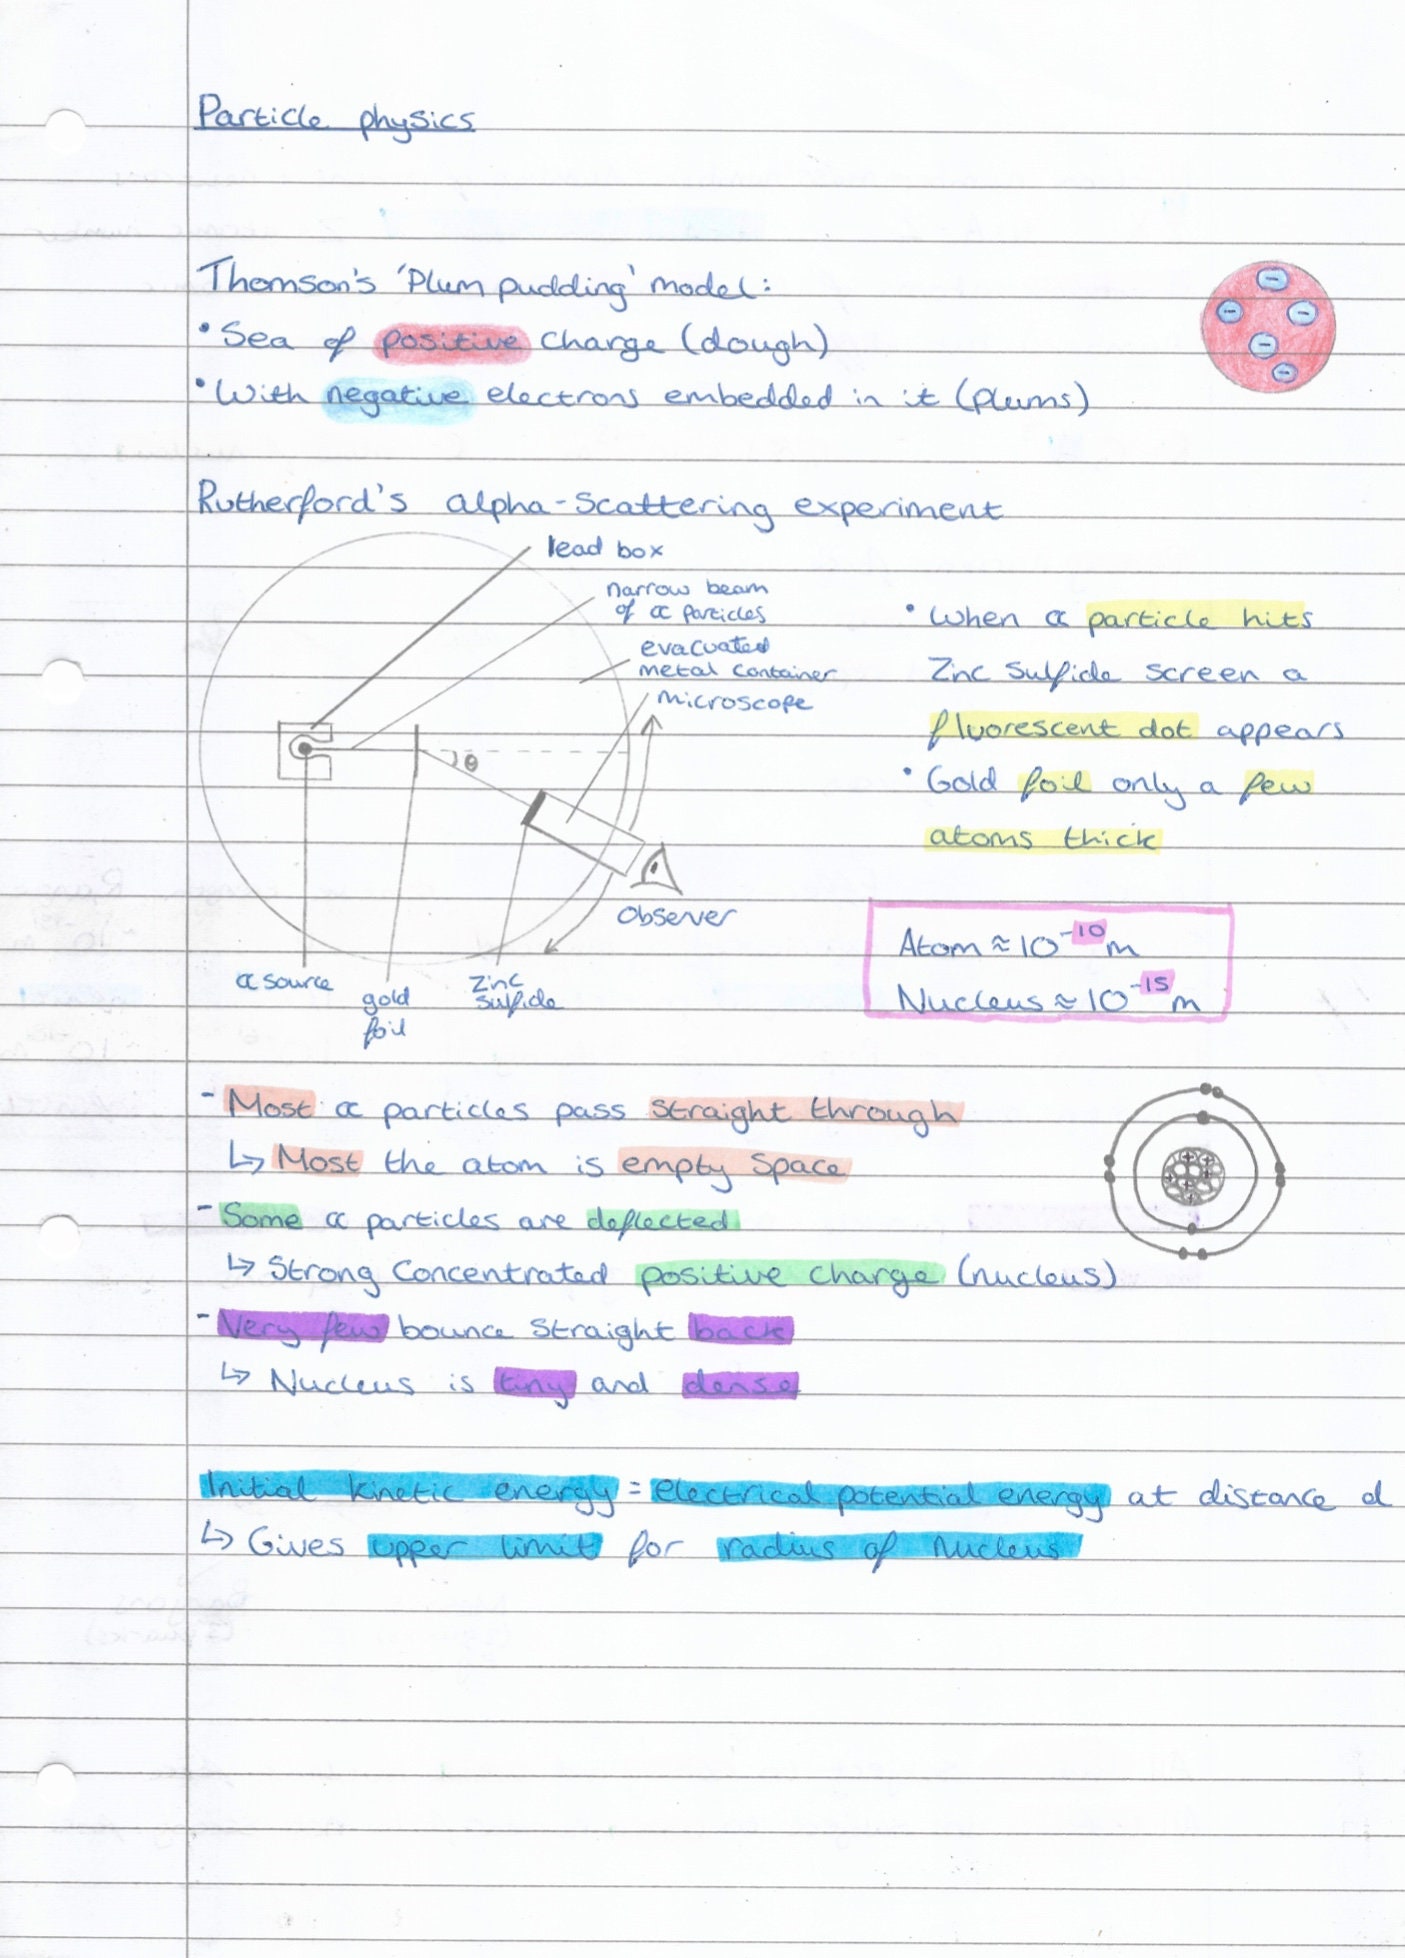 Particle physics
Thomson's 'Plum pudding' model:
• Sea of positive charge (dough)
• With negative electrons embedded in it (plums)
Rutherford's alpha-scattering experiment
lead box
narrow beam
of α particles
evacuated
metal container
microscope
θ
observer
α source
gold
foil
zinc
sulfide
• When α particle hits
zinc sulfide screen a
fluorescent dot appears
• Gold foil only a few
atoms thick
Atom ≈ 10⁻¹⁰ m
Nucleus ≈ 10⁻¹⁵ m
- Most α particles pass straight through
↳ Most the atom is empty space
- Some α particles are deflected
↳ Strong concentrated positive charge (nucleus)
- Very few bounce straight back
↳ Nucleus is tiny and dense
Initial kinetic energy = electrical potential energy at distance d
↳ Gives upper limit for radius of nucleus